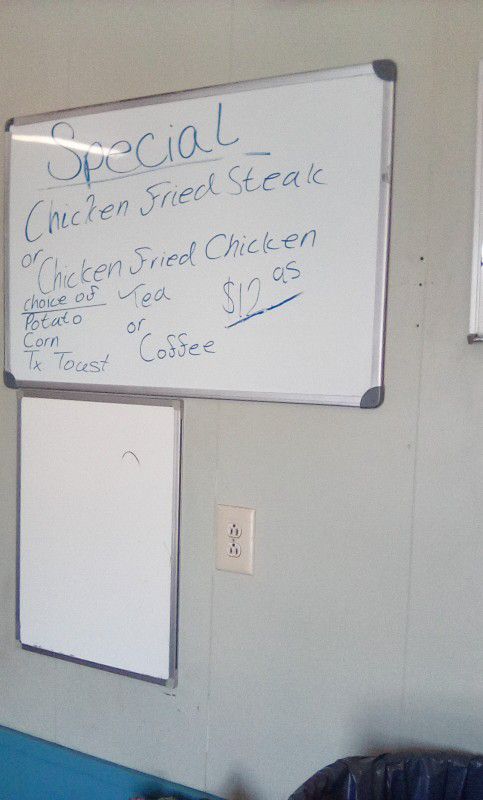 Special
Chicken Fried Steak
or
Chicken Fried Chicken
choice of
Potato
Corn
Tx Toast
Tea
or
Coffee
$12